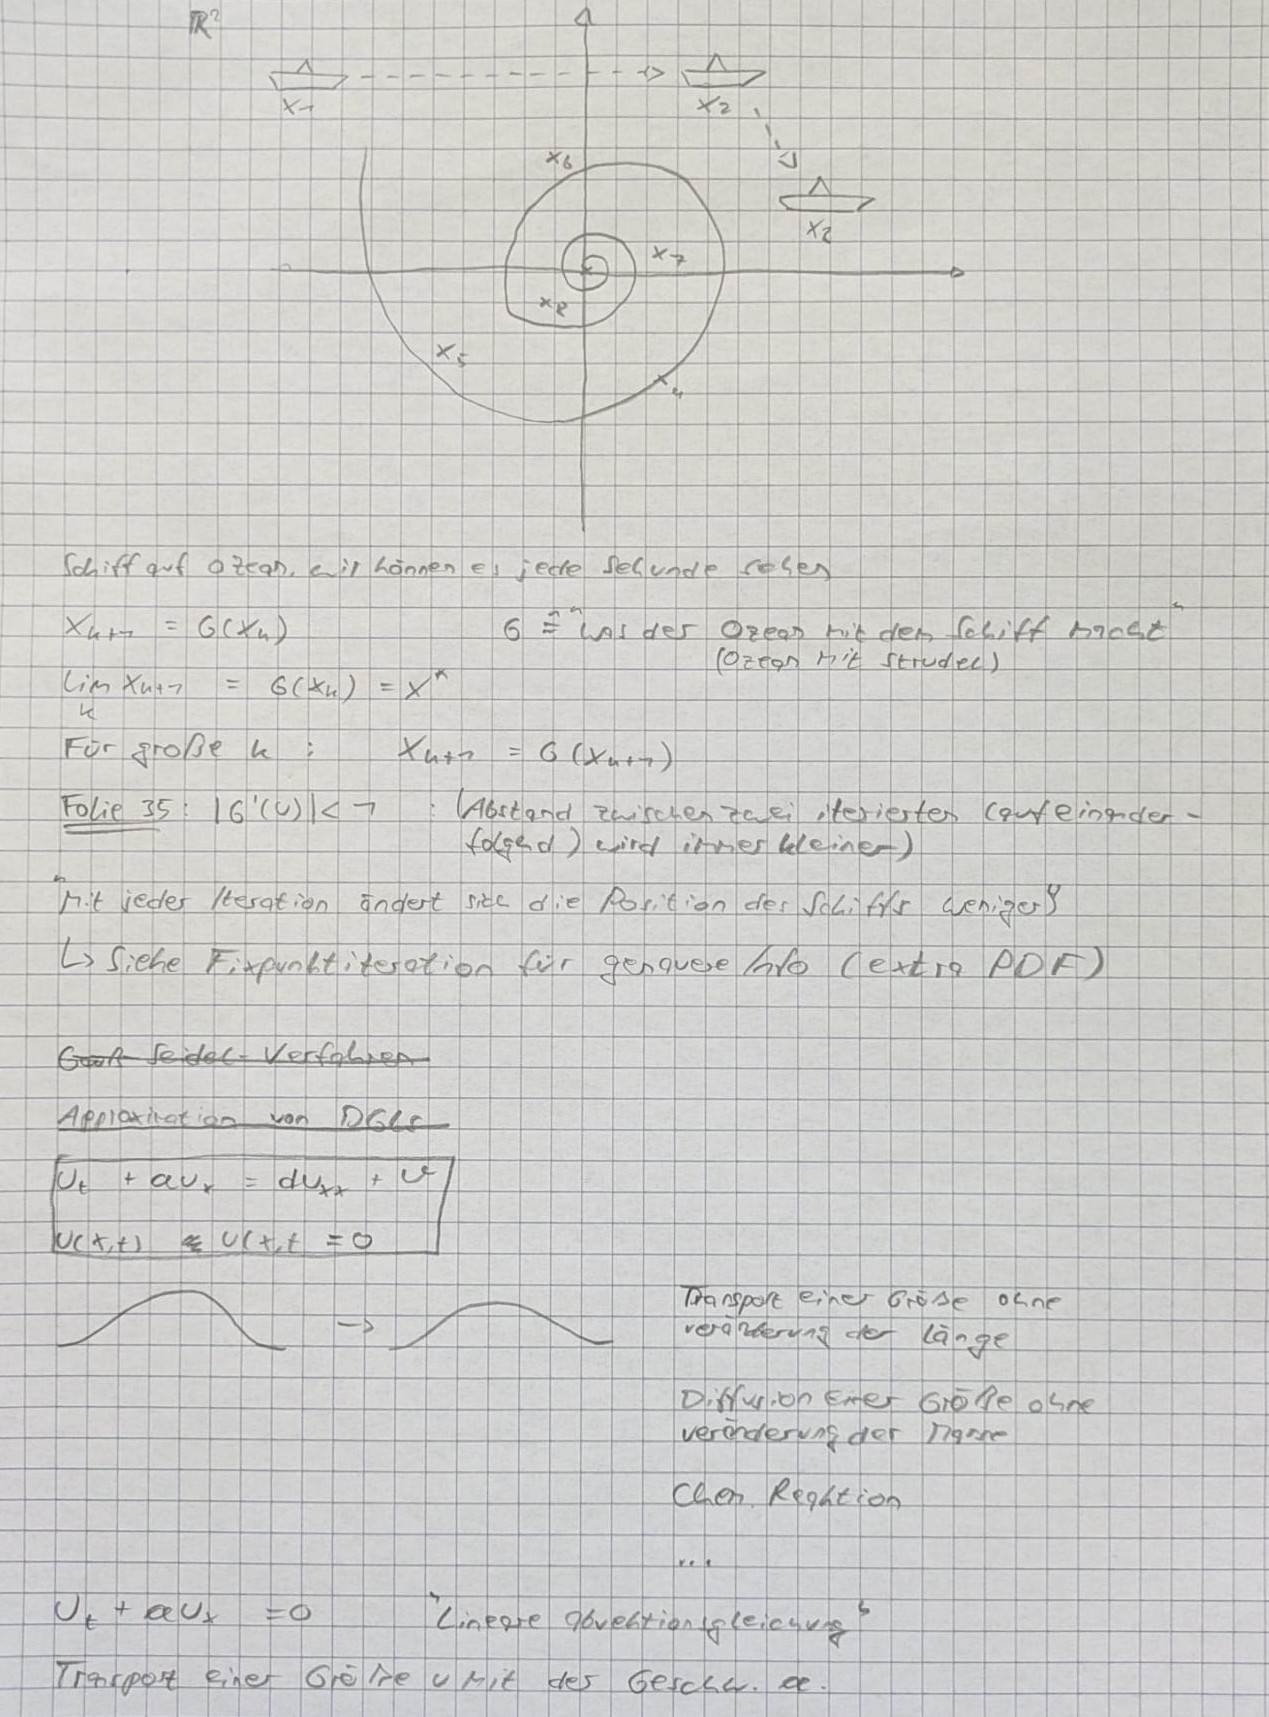 R²
x1
x2
x2
x6
x7
x8
x5
x4
Schiff auf Ozean, wir können es jede Sekunde sehen
x_{k+1} = G(x_k)
G ≙ "was der Ozean mit dem Schiff macht"
(Ozean mit Strudel)
lim x_{k+1} = G(x_k) = x*
k
Für große k : x_{k+1} = G(x_{k+1})
Folie 35: |G'(U)| < 1 : (Abstand zwischen zwei iterierten (aufeinander-
folgend) wird immer kleiner)
"Mit jeder Iteration ändert sich die Position des Schiffs weniger"
↳ Siehe Fixpunktiteration für genauere Info (extra PDF)
Gauß-Seidel-Verfahren
Approximation von DGLs
U_t + aU_x = dU_xx + U
U(x,t) U(x,t = 0
→
Transport einer Größe ohne
veränderung der Länge
Diffusion einer Größe ohne
veränderung der Masse
Chem. Reaktion
...
U_t + aU_x = 0 "Lineare Advektionsgleichung"
Transport einer Größe u mit der Geschw. a.